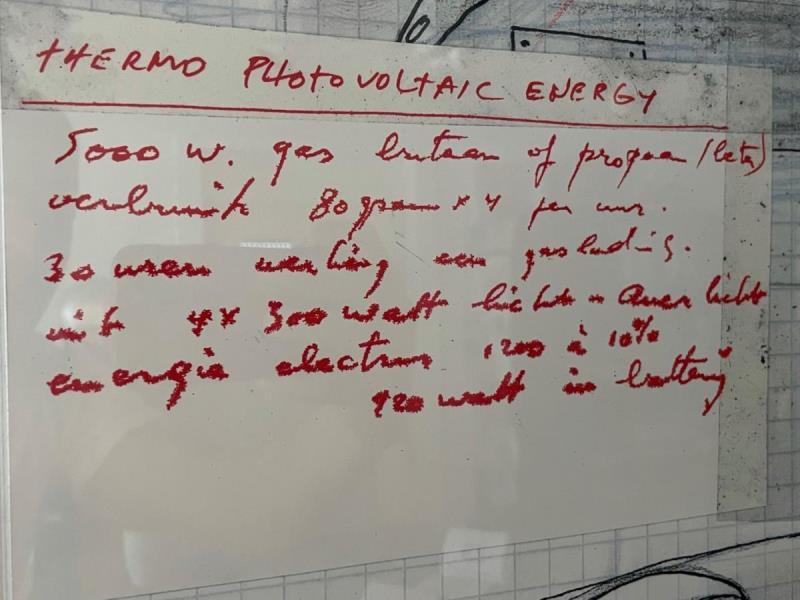 THERMO PHOTOVOLTAIC ENERGY
5000 W. gas butaan of propaan (beta)
verbruik 80 gram x 4 per uur.
30 uren werking een gaslading.
uit 4x 300 watt licht =
energie electrun 1200 à 10%
120 watt in batterij